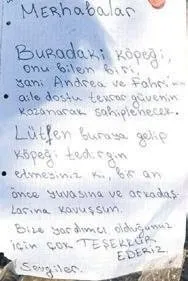 MERHABALAR
BURADAKi köpeği,
onu bilen biri,
yani Andrea ve Fahri'nin
aile dostu tekrar güvenin
kazanarak sahiplenecek.
Lütfen buraya gelip
köpeği tedirgin
etmesiniz ki, bir an
önce yuvasına ve arkadaş-
larına kavuşsun.
Bize yardımcı olduğunuz
için çok TEŞEKKÜR
EDERİZ
Sevgiler.